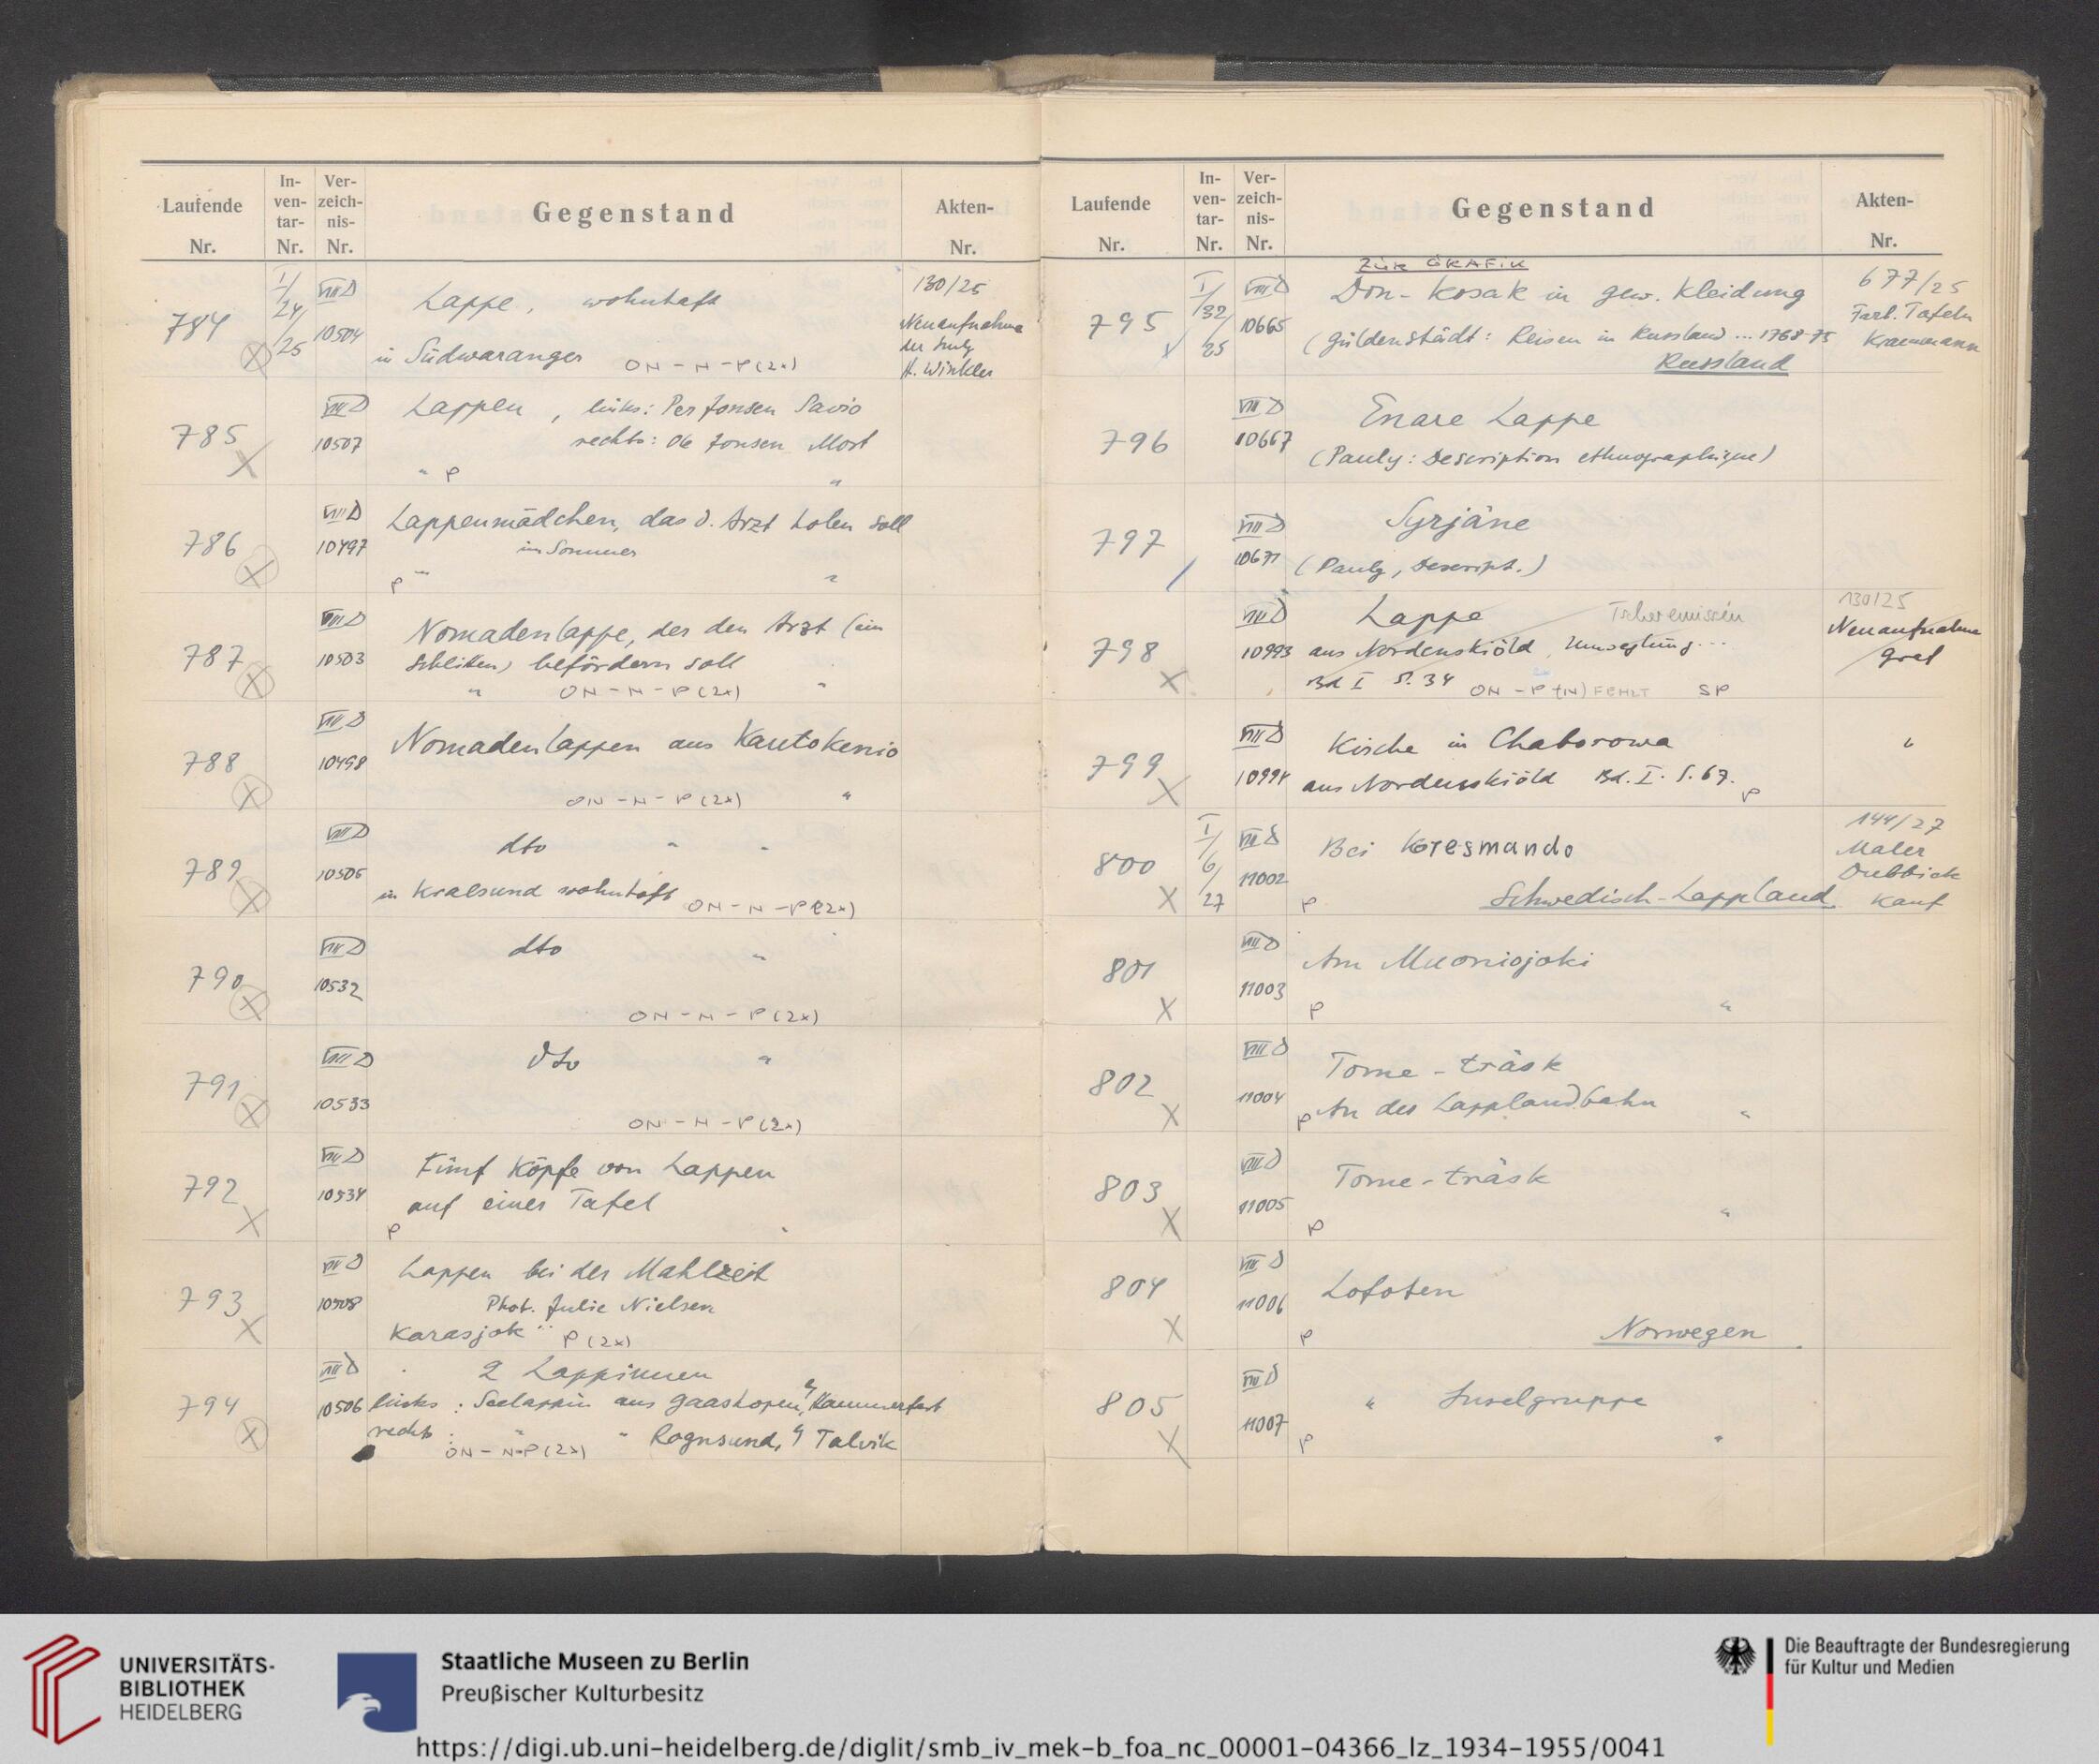 Laufende Nr. In-ven-tar-Nr. Ver-zeich-nis-Nr. Gegenstand Akten-Nr.
784 I/24/25 VIII D 10504 Lappe, wohnhaft 130/25
in Südwaranger ON-N-P(2x) Neuaufnahme
H. Winkler
785 VIII D 10507 Lappen, links: Per Jonsen Savio
rechts: Ole Jonsen Mort
" P "
786 VIII D 10497 Lappenmädchen, das d. Arzt holen soll
im Sommer
P " "
787 VIII D 10503 Nomadenlappe, der den Arzt (im
Schlitten) befördern soll
" ON-N-P(2x) "
788 VIII D 10498 Nomadenlappen aus Kautokenio
ON-N-P(2x) "
789 VIII D 10505 dto " "
in Kralsund wohnhaft ON-N-P(2x)
790 VIII D 10532 dto "
ON-N-P(2x)
791 VIII D 10533 dto "
ON-N-P(2x)
792 VIII D 10534 Fünf Köpfe von Lappen
auf einer Tafel
P
793 VIII D 10508 Lappen bei der Mahlzeit
Phot. Julie Nielsen
Karasjok P(2x)
794 VIII D 2 Lappinnen
10506 links: Seelappin aus Gaashopen, Hammerfest
rechts: " " Rognsund, Talvik
ON-N-P(2x)
Laufende Nr. In-ven-tar-Nr. Ver-zeich-nis-Nr. Gegenstand Akten-Nr.
ZUR GRAFIK
795 I/32/25 VIII D 10665 Don-Kosak in gew. Kleidung 677/25
(Güldenstädt: Reisen in Russland ... 1768-75 Farb. Tafeln
Russland Kraemmann
796 VIII D 10667 Enare Lappe
(Pauly: Description ethnographique)
797 VIII D 10671 Syrjäne
(Pauly, Descript.)
798 VIII D 10993 Lappe Tscheremissin 130/25
aus Nordenskiöld, Umseglung... Neuaufnahme
Bd I S. 34 ON-P (N) FEHLT SP
799 VIII D 10994 Kirche in Chaborowa "
aus Nordenskiöld Bd. I. S. 67. P
800 I/6/27 VIII D 11002 Bei Koresmando 144/27
Maler
P Schwedisch-Lappland Kauf
801 VIII D 11003 Am Muoniojoki
P "
802 VIII D 11004 Torne-träsk
P An der Lapplandbahn "
803 VIII D 11005 Torne-träsk
P "
804 VIII D 11006 Lofoten
P Norwegen
805 VIII D 11007 " Inselgruppe
P "
UNIVERSITÄTS-
BIBLIOTHEK
HEIDELBERG
Staatliche Museen zu Berlin
Preußischer Kulturbesitz
Die Beauftragte der Bundesregierung
für Kultur und Medien
https://digi.ub.uni-heidelberg.de/diglit/smb_iv_mek-b_foa_nc_00001-04366_lz_1934-1955/0041